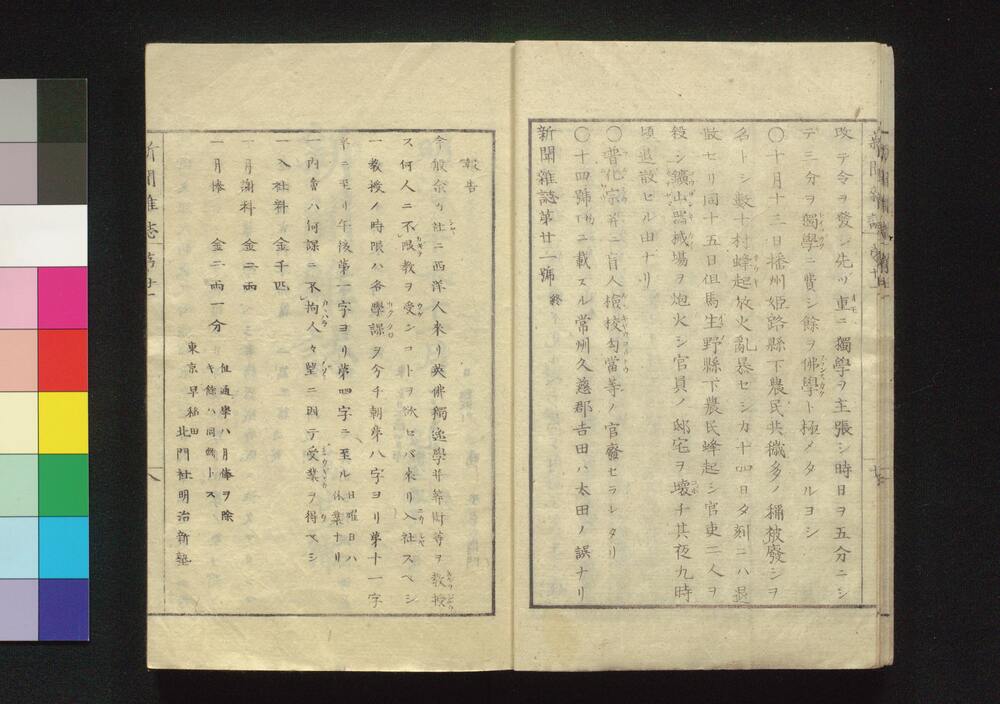 改テ令ヲ發シ先ツ重ニ獨學ヲ主張シ時日ヲ五分ニシ
テ三分ヲ獨學ニ費シ餘ヲ佛學ト極メタルヨシ
〇十月十三日播州姫路縣下農民共穢多ノ稱被廢シヲ
名トシ數十村蜂起放火亂暴セシカ十四日夕刻ニハ退
散セリ同十五日但馬生野縣下農民蜂起シ官吏二人ヲ
殺シ鑛山器械場ヲ炮火シ官員ノ邸宅ヲ壊チ其夜九時
頃退散セル由ナリ
〇普化宗并ニ盲人檢校勾當等ノ官廢セラレタリ
〇十四號ニ載スル常州久慈郡吉田ハ太田ノ誤ナリ
新聞雜誌第廿一號 終
報告
今般余カ社ニ西洋人来リ英佛獨逸學并筭術等ヲ教授
ス何人ニ不限教ヲ受ンコトヲ欲セバ来リ入社スベシ
一教授ノ時限ハ各學課ヲ分チ朝第八字ヨリ第十一字
半ニ至リ午後第一字ヨリ第四字ニ至ル 日曜日ハ休業ナリ
一内會ハ何課ニ不拘人々望ニ因テ受業ヲ得ベシ
一入社料 金千匹
一月謝料 金二兩
一月俸 金二兩一分 但通學ハ月俸ヲ除キ餘ハ同斷トス
東京早稲田 北門社明治新塾
新聞雜誌 第廿一